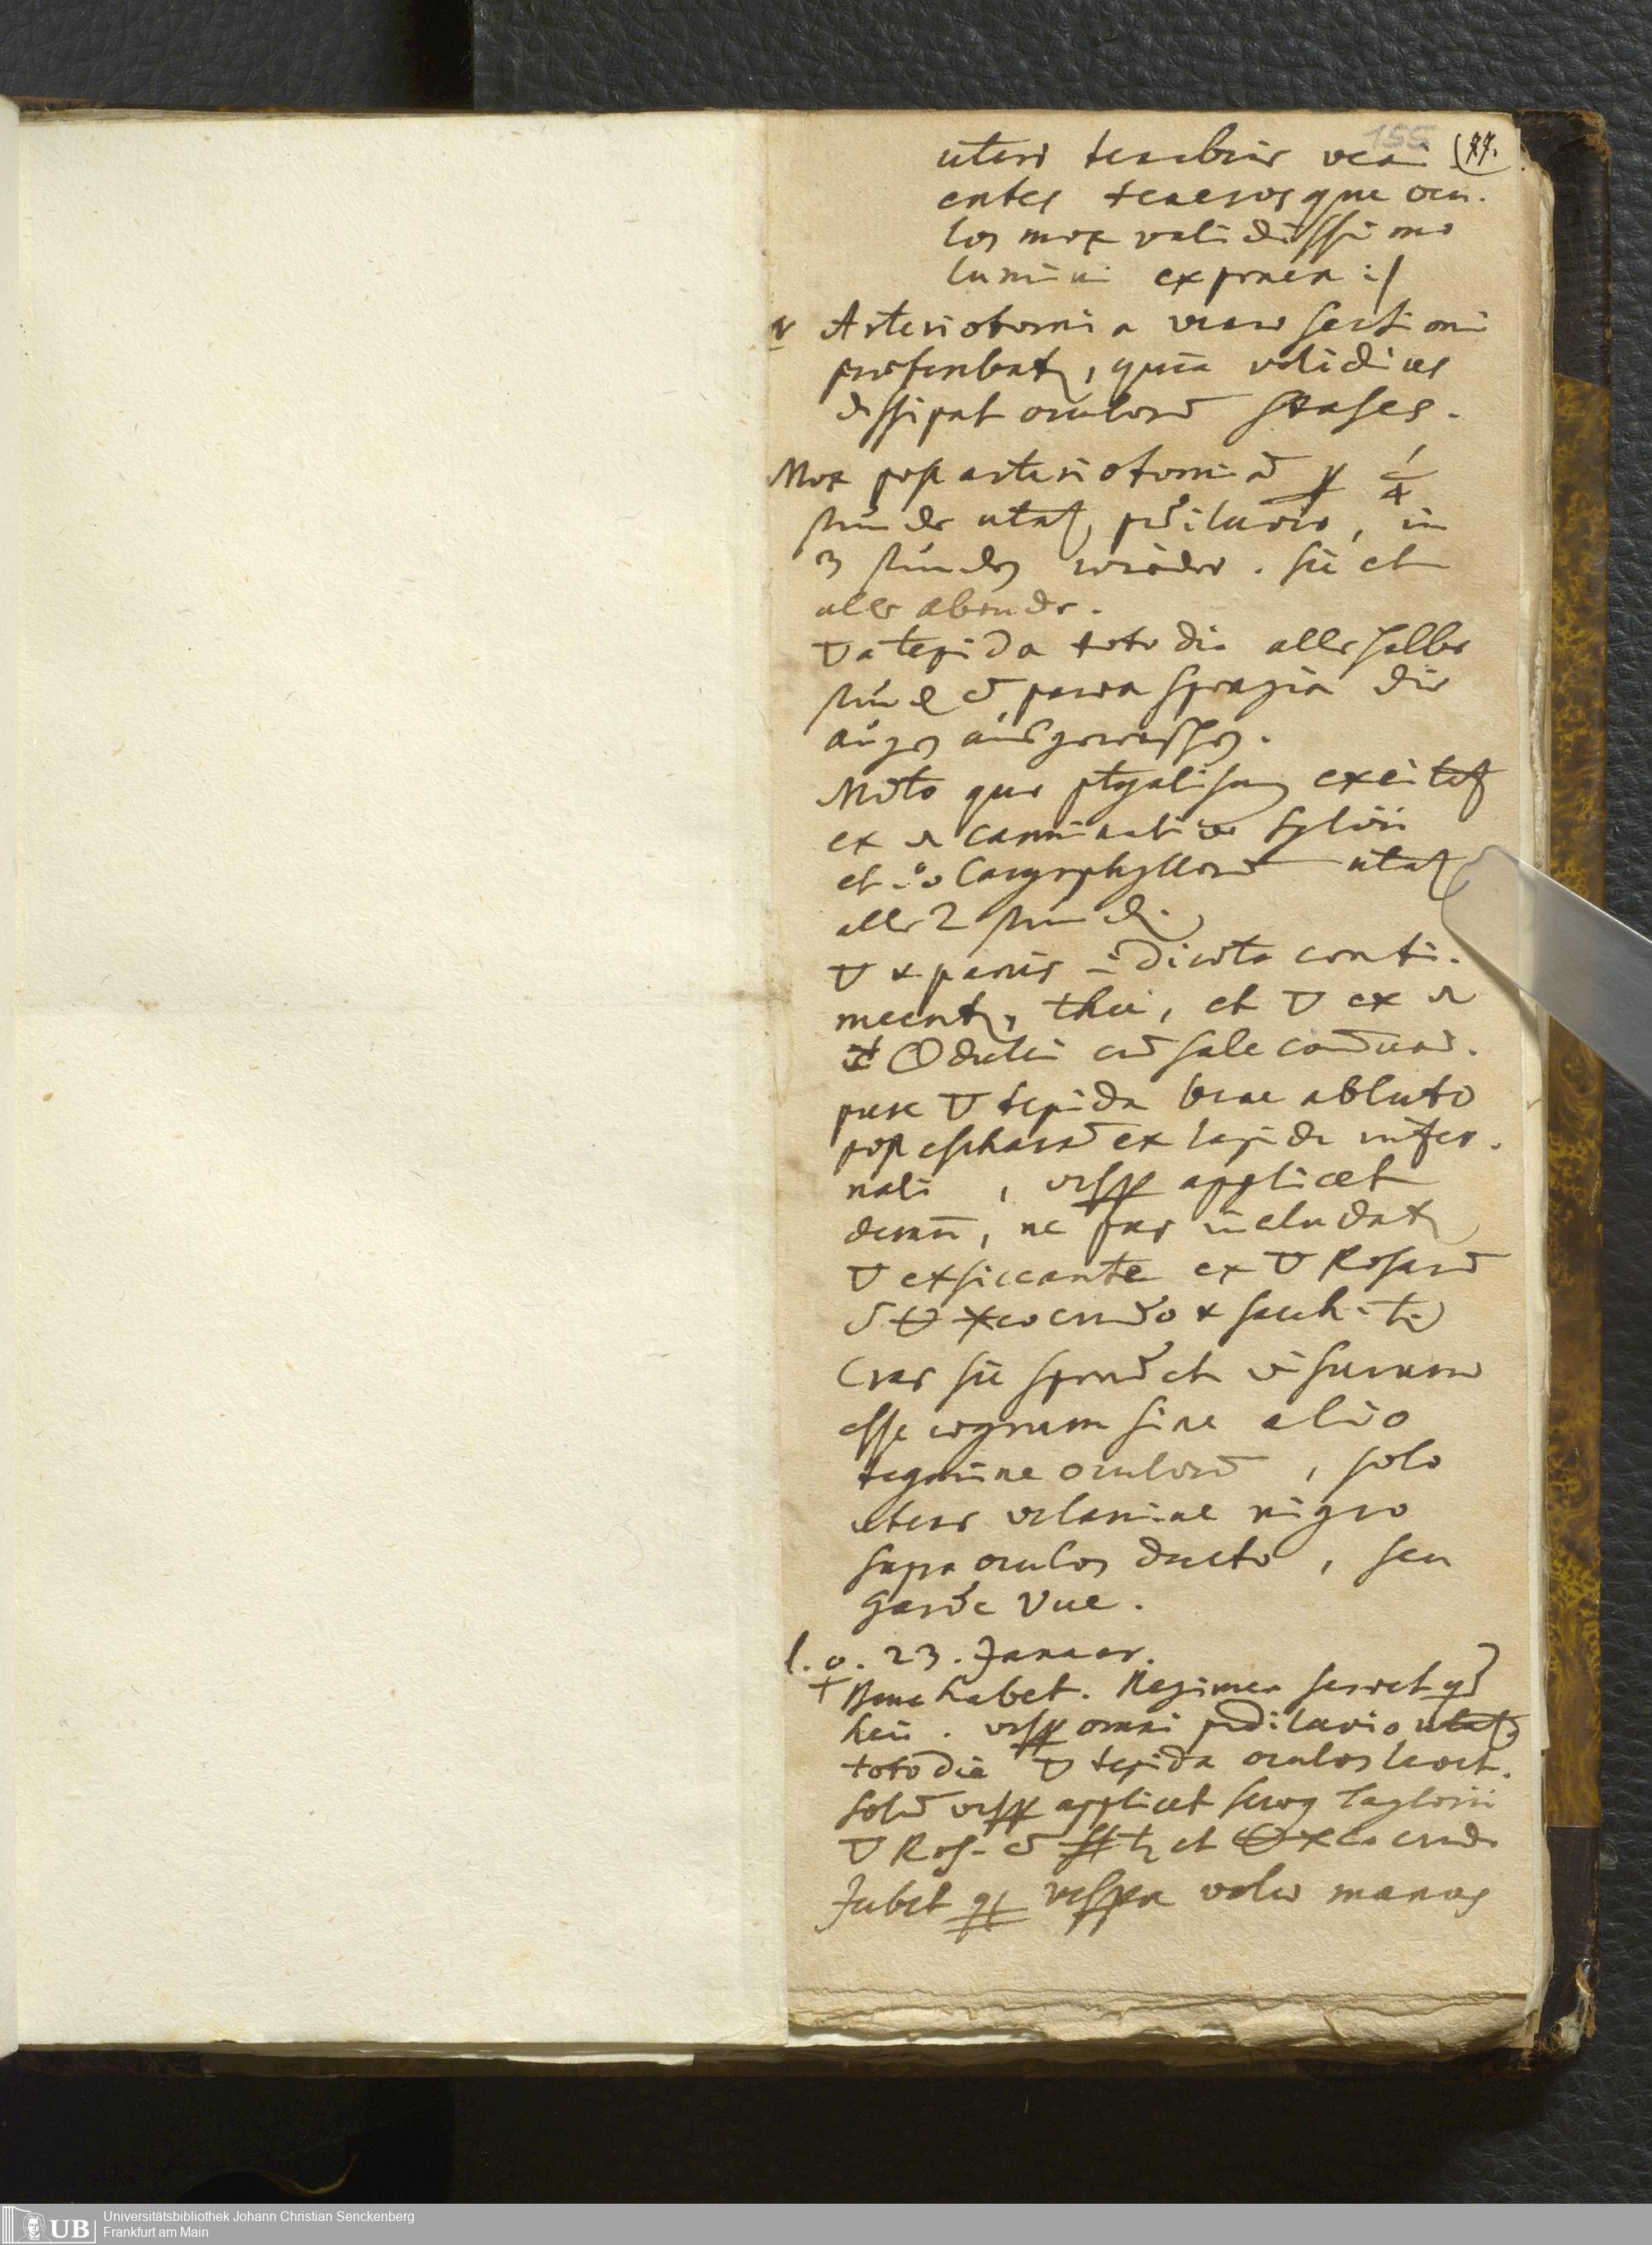 155 (77.
uteri tenebris veni
entes tenerosque ocu-
los mox validissimo
lumini exponere :/
Arteriotomia venaesectioni
praeferebatur, quia validius
dissipat oculorum stases.
Mox post arteriotomiã 1/4
stunde utatur pediluvio, in
3 stunden wieder. sic et
alle abende.
▽a tepida toto die alle halbe
stund c̄ parva spongia die
augen ausgewaschen.
Moto que ptyalismus excitetur
ex carminativo Sylvii
et Caryophyllorum utatur
alle 2 stund.
▽ panis dicta conti-
nuentur, thee, et ▽ ex
dulci cum sale
pure ▽ tepida bene abluto
post escharam ex lapide infer-
nali, vesp applicet
demum, ne pus includatur
▽ exsiccante ex ▽ Rosarum
c̄ crudo sacch.
Cras sic spondet visurum
esse aegrum sine alio
tegmine oculorum, solo
utens velamine nigro
supra oculos ducto, seu
garde Vue.
23. Januar.
Bene habet. Regimen servet qd
heri. vesp omni pediluvio utatur,
toto die ▽ tepida oculos lavet.
solum vesp applicet Taylorii
▽ Ros. c̄ et crudo
Jubet vespera manus
Universitätsbibliothek Johann Christian Senckenberg
Frankfurt am Main
UB